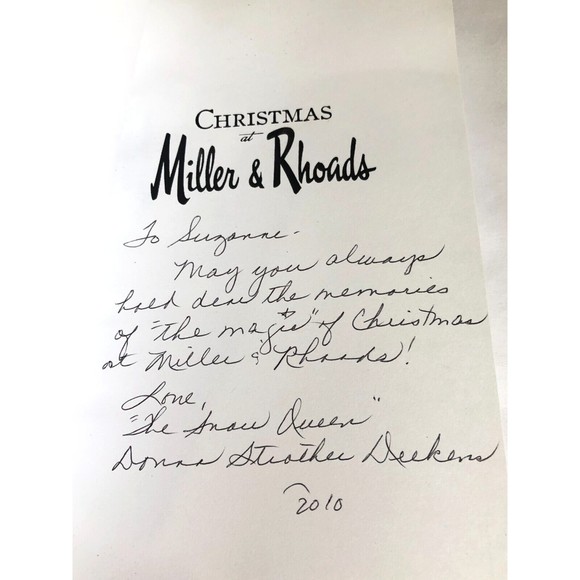 CHRISTMAS
at
Miller & Rhoads
To Suzanne -
May you always
hold dear the memories
of "the magic" of Christmas
at Miller & Rhoads!
Love,
"The Snow Queen"
Donna Strother Deekens
2010